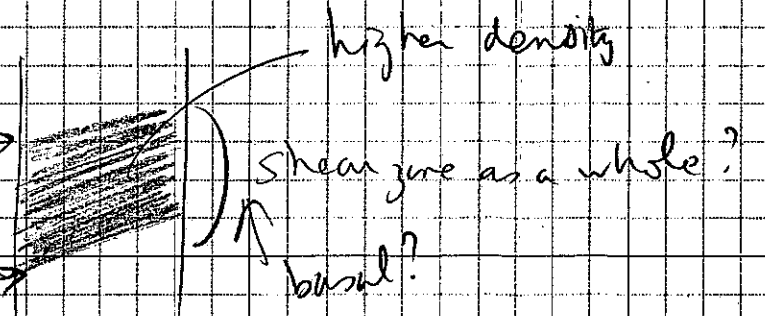 higher density
shear zone as a whole?
basal?